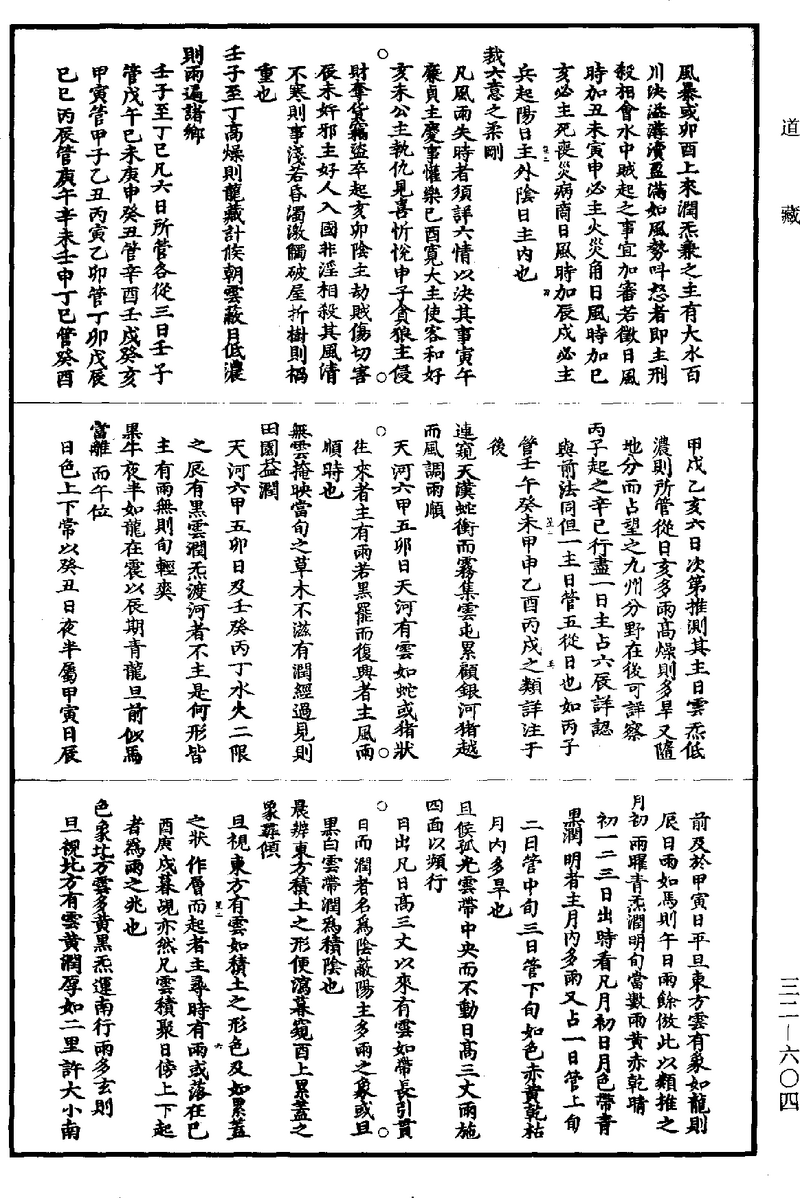 道藏
風暴或卯酉上來潤炁兼之主有大水百
川決溢溝瀆盈滿如風勢呌怒者即主刑
殺相會水中賊起之事宜加審若徵日風
時加丑未寅申必主火災角日風時加巳
亥必主死喪災病商日風時加辰戌必主
兵起陽日主外陰日主內也
裁六意之柔剛
凡風雨失時者須詳六情以決其事寅午
廉貞主慶事懽樂巳酉寬大主使客和好
亥未公主執仇見喜忻悅申子貪狼主侵
財奪貨竊盜卒起亥卯陰主劫賊傷切害
辰未奸邪主好人入國非淫相殺其風清
不寒則事淺若昏濁激觸破屋折樹則禍
重也
壬子至丁高燥則龍藏計候朝雲蔽月低濃
則雨遍諸鄉
壬子至丁巳凡六日所管各從三日壬子
管戊午巳未庚申癸丑管辛酉壬戌癸亥
甲寅管甲子乙丑丙寅乙卯管丁卯戊辰
巳巳丙辰管庚午辛未壬申丁巳管癸酉
甲戌乙亥六日次第推測其主日雲炁低
濃則所管從日亥多雨高燥則多旱又隨
地分而占望之九州分野在後可詳察
丙子起之辛巳行盡一日主占六辰詳認
與前法同但一主日管五從日也如丙子
管壬午癸未甲申乙酉丙戌之類詳注于
後
連窺天漢蛇衝而霧集雲屯累顧銀河猪越
而風調雨順
天河六甲五卯日天河有雲如蛇或猪狀
往來者主有雨若黑罷而復興者主風雨
順時也
無雲掩映當旬之草木不滋有潤經過見則
田園益潤
天河六甲五卯日及壬癸丙丁水火二限
之辰有黑雲潤炁渡河者不主是何形皆
主有雨無則旬輕爽
果牛夜半如龍在震以辰期青龍旦前似馬
當離而午位
日色上下常以癸丑日夜半屬甲寅日辰
前及於甲寅日平旦東方雲有象如龍則
辰日雨如馬則午日雨餘倣此以類推之
月初雨曜青炁潤明旬當數雨黃赤乾晴
初一二三日出時看凡月初日月色帶青
黑潤明者主月內多雨又占一日管上旬
二日管中旬三日管下旬如色赤黃乾枯
月內多旱也
旦候孤光雲帶中央而不動日高三丈雨施
四面以頻行
日出凡日高三丈以來有雲如帶長引貫
日而潤者名爲陰蔽陽主多雨之象或旦
黑白雲帶潤爲積陰也
晨辨東方積土之形便瀉暮窺酉上累蓋之
象尋傾
旦視東方有雲如積土之形色及如累蓋
之狀作層而起者主尋時有雨或落在巳
酉庚戌暮覘亦然凡雲積聚日傍上下起
者爲雨之兆也
色象北方雲多黃黑炁運南行雨多玄則
旦視北方有雲黃潤厚如二里許大小南
三二—六〇四